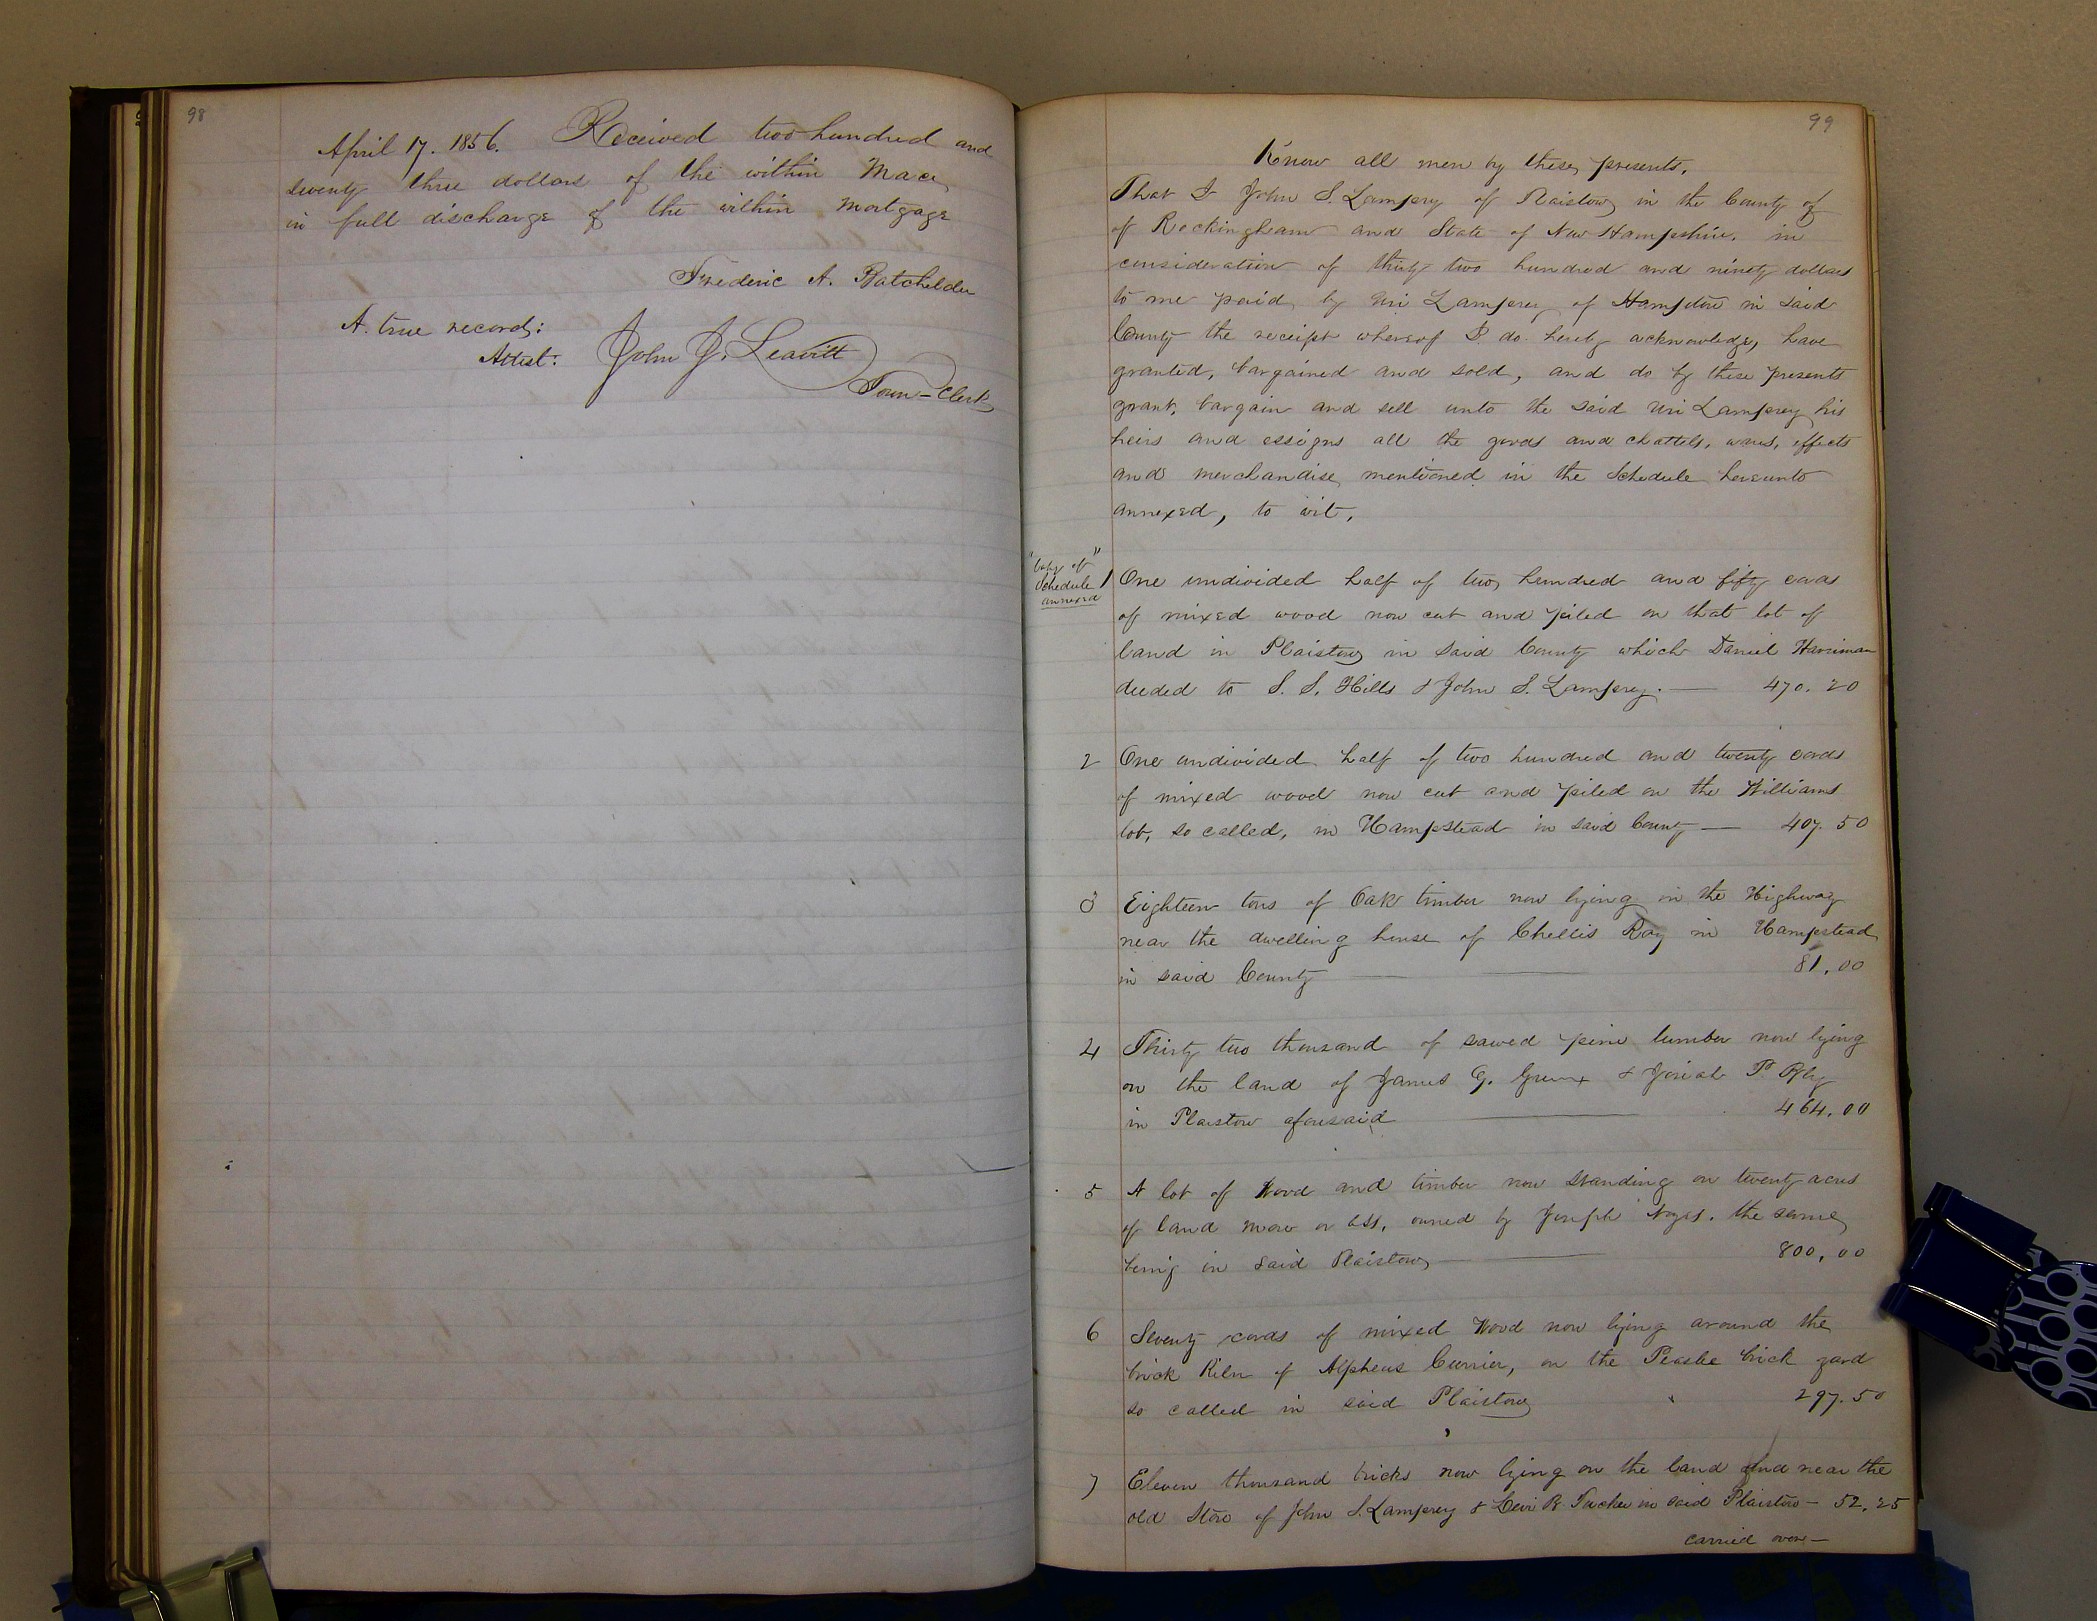 98
April 17. 1856. Received two hundred and
seventy three dollars of the within Mace
in full discharge of the within mortgage
Frederic A. Batchelder
A. true record:
Attest: John J. Leavitt
Town-Clerk
99
Know all men by these presents,
That I John S. Lamprey of Plaistow in the County of
of Rockingham and State of New Hampshire, in
consideration of thirty two hundred and ninety dollars
to me paid by Uri Lamprey of Hampton in said
County the receipt whereof I do hereby acknowledge, have
granted, bargained and sold, and do by these presents
grant, bargain and sell unto the said Uri Lamprey his
heirs and assigns all the goods and chattels, wares, effects
and merchandise mentioned in the Schedule hereunto
annexed, to wit,
"Copy of"
Schedule
annexed
1 One undivided half of two hundred and fifty cords
of mixed wood now cut and piled on that lot of
land in Plaistow in said County which Daniel Harriman
deeded to S. S. Hills & John S. Lamprey. — 470. 20
2 One undivided half of two hundred and twenty cords
of mixed wood now cut and piled on the Williams
lot, so called, in Hampstead in said County — 407. 50
3 Eighteen tons of Oak timber now lying in the Highway
near the dwelling house of Chellis Ray in Hampstead
in said County — 81.00
4 Thirty two thousand of sawed pine lumber now lying
on the land of James G. & Josiah P.
in Plaistow aforesaid — 464.00
5 A lot of Wood and timber now standing on twenty acres
of land more or less, owned by Joseph Noyes. the same
being in said Plaistow — 800,00
6 Seventy cords of mixed Wood now lying around the
brick Kiln of Alpheus Currier, on the Peaslee brick yard
so called in said Plaistow 297.50
7 Eleven thousand bricks now lying on the land and near the
old Store of John S. Lamprey & Levi B. Tucker in said Plaistow — 52.25
carried over —